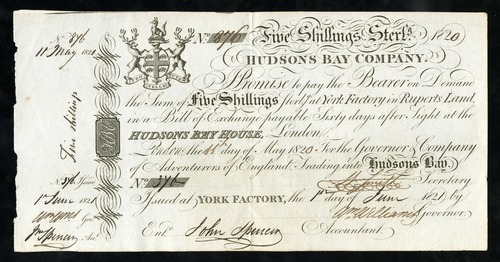 No. 876
11 May 1820
No. 876
Five Shillings Sterl.g 1820
HUDSONS BAY COMPANY.
Promise to pay the Bearer on Demand
the Sum of Five Shillings sterl.g at York Factory in Ruperts Land,
in a Bill of Exchange payable Sixty days after Sight at the
HUDSONS BAY HOUSE, London
London the day of May 1820 For the Governor & Company
of Adventurers of England Trading into Hudsons Bay
No. 876
Secretary
Issued at YORK FACTORY, the 1st day of June 1821 by
Wm Williams Governor
Ent.d John Spencer Accountant.
Five shillings
HBC
No. 876 Issue
1st June 1821
Gov.
Jn Spencer Acc.